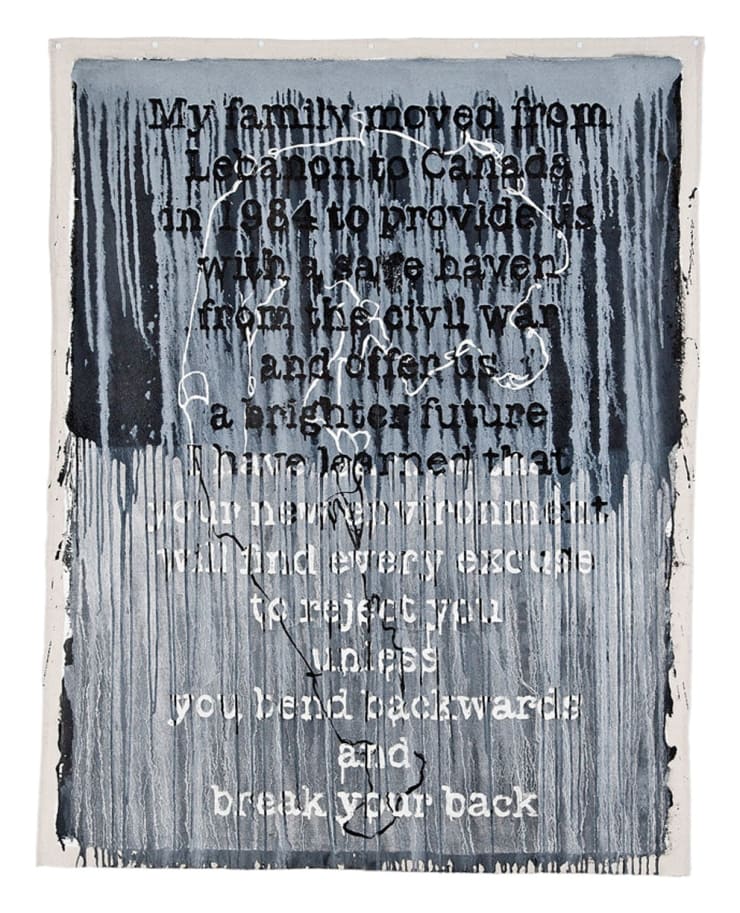 My family moved from
Lebanon to Canada
in 1984 to provide us
with a safe haven
from the civil war
and offer us
a brighter future
I have learned that
your new environment
will find every excuse
to reject you
unless
you bend backwards
and
break your back